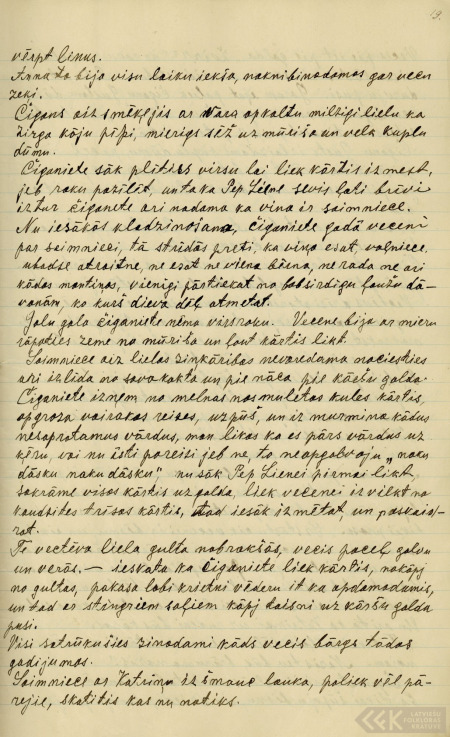 19.
vērpt linus.
Anna to bija visu laiku iekša, naknibinodamos gar veču
zeķi.
Čigans aizsmēķejis ar vara apkaltu milzīgi lielu ka
zirga kāju pīpi, mierīgs sēž uz mūriša un velk kuplu
dūmu.
Čiganiete sāk plitties virsu lai liek kārtis izmest,
jeb roku pazīlēt, un ta ka Pep Liene sevis ļoti brīvi
iztur čiganete ari nodoma ka viņa ir saimniece.
Nu iesākās kladzinašana, čiganiete godā veceni
par saimnieci, tā strīdās preti, ka viņa esat, vaļniece
ubadze atraitne, ne esat ne viena bērna, ne rada ne ari
kādas mantiņas, vienigi pārtiekat no labsirdigu ļaužu dā-
vanām, ko kurš dieva dēļ atmetat.
Galu gala čiganiete nēma virsroku. Vecene bija ar mieru
rāpoties zeme no mūriša un ļaut kārtis likt.
Saimniece aiz lielas ziņkāribas nevaredama nociesties
ari izlīda no sava kakta un pie nāca pie kāršu galda.
Čiganiete izņem no melnas nosmulētas kules kārtis,
apgroza vairakas reizes, uzpūš, un iz murmina kādus
nesaprotamus vārdus, man likas ka es pārs vārdus uz
ķēru, vai nu īsti pareizi jeb ne, to neapgalvoju „naku
dāsku naku dāsku", nu sāk Pep Lienei pirmai likt,
sakrāme visas kārtis uz galda, liek vecenei iz vilkt no
kaudzites trīsas kārtis, tad iesāk izmētat, un paskaid-
rot.
Te vectēva liela gulta nobrakšās, vecis paceļ galvu
un verās. — ieskata ka čiganiete liek kārtis, nokāpj
no gultas, pakasa labi krietni vēderu it ka apdomadamis,
un tad ar stingriem soļiem kāpj taisni uz kāršu galda
pusi.
Visi satrūkušies zinadami kāds vecis bārgs tādos
gadijumos.
Saimniece ar Katriņu izšmauc lauka, paliek vēl pā-
rejie, skatitis kas nu notiks.
LATVIEŠU
FOLKLORAS
KRĀTUVE